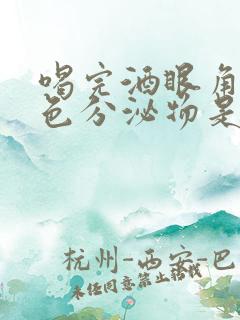 喝完酒眼角
色分泌物是
杭州-西安-巴
未经同意禁止转载